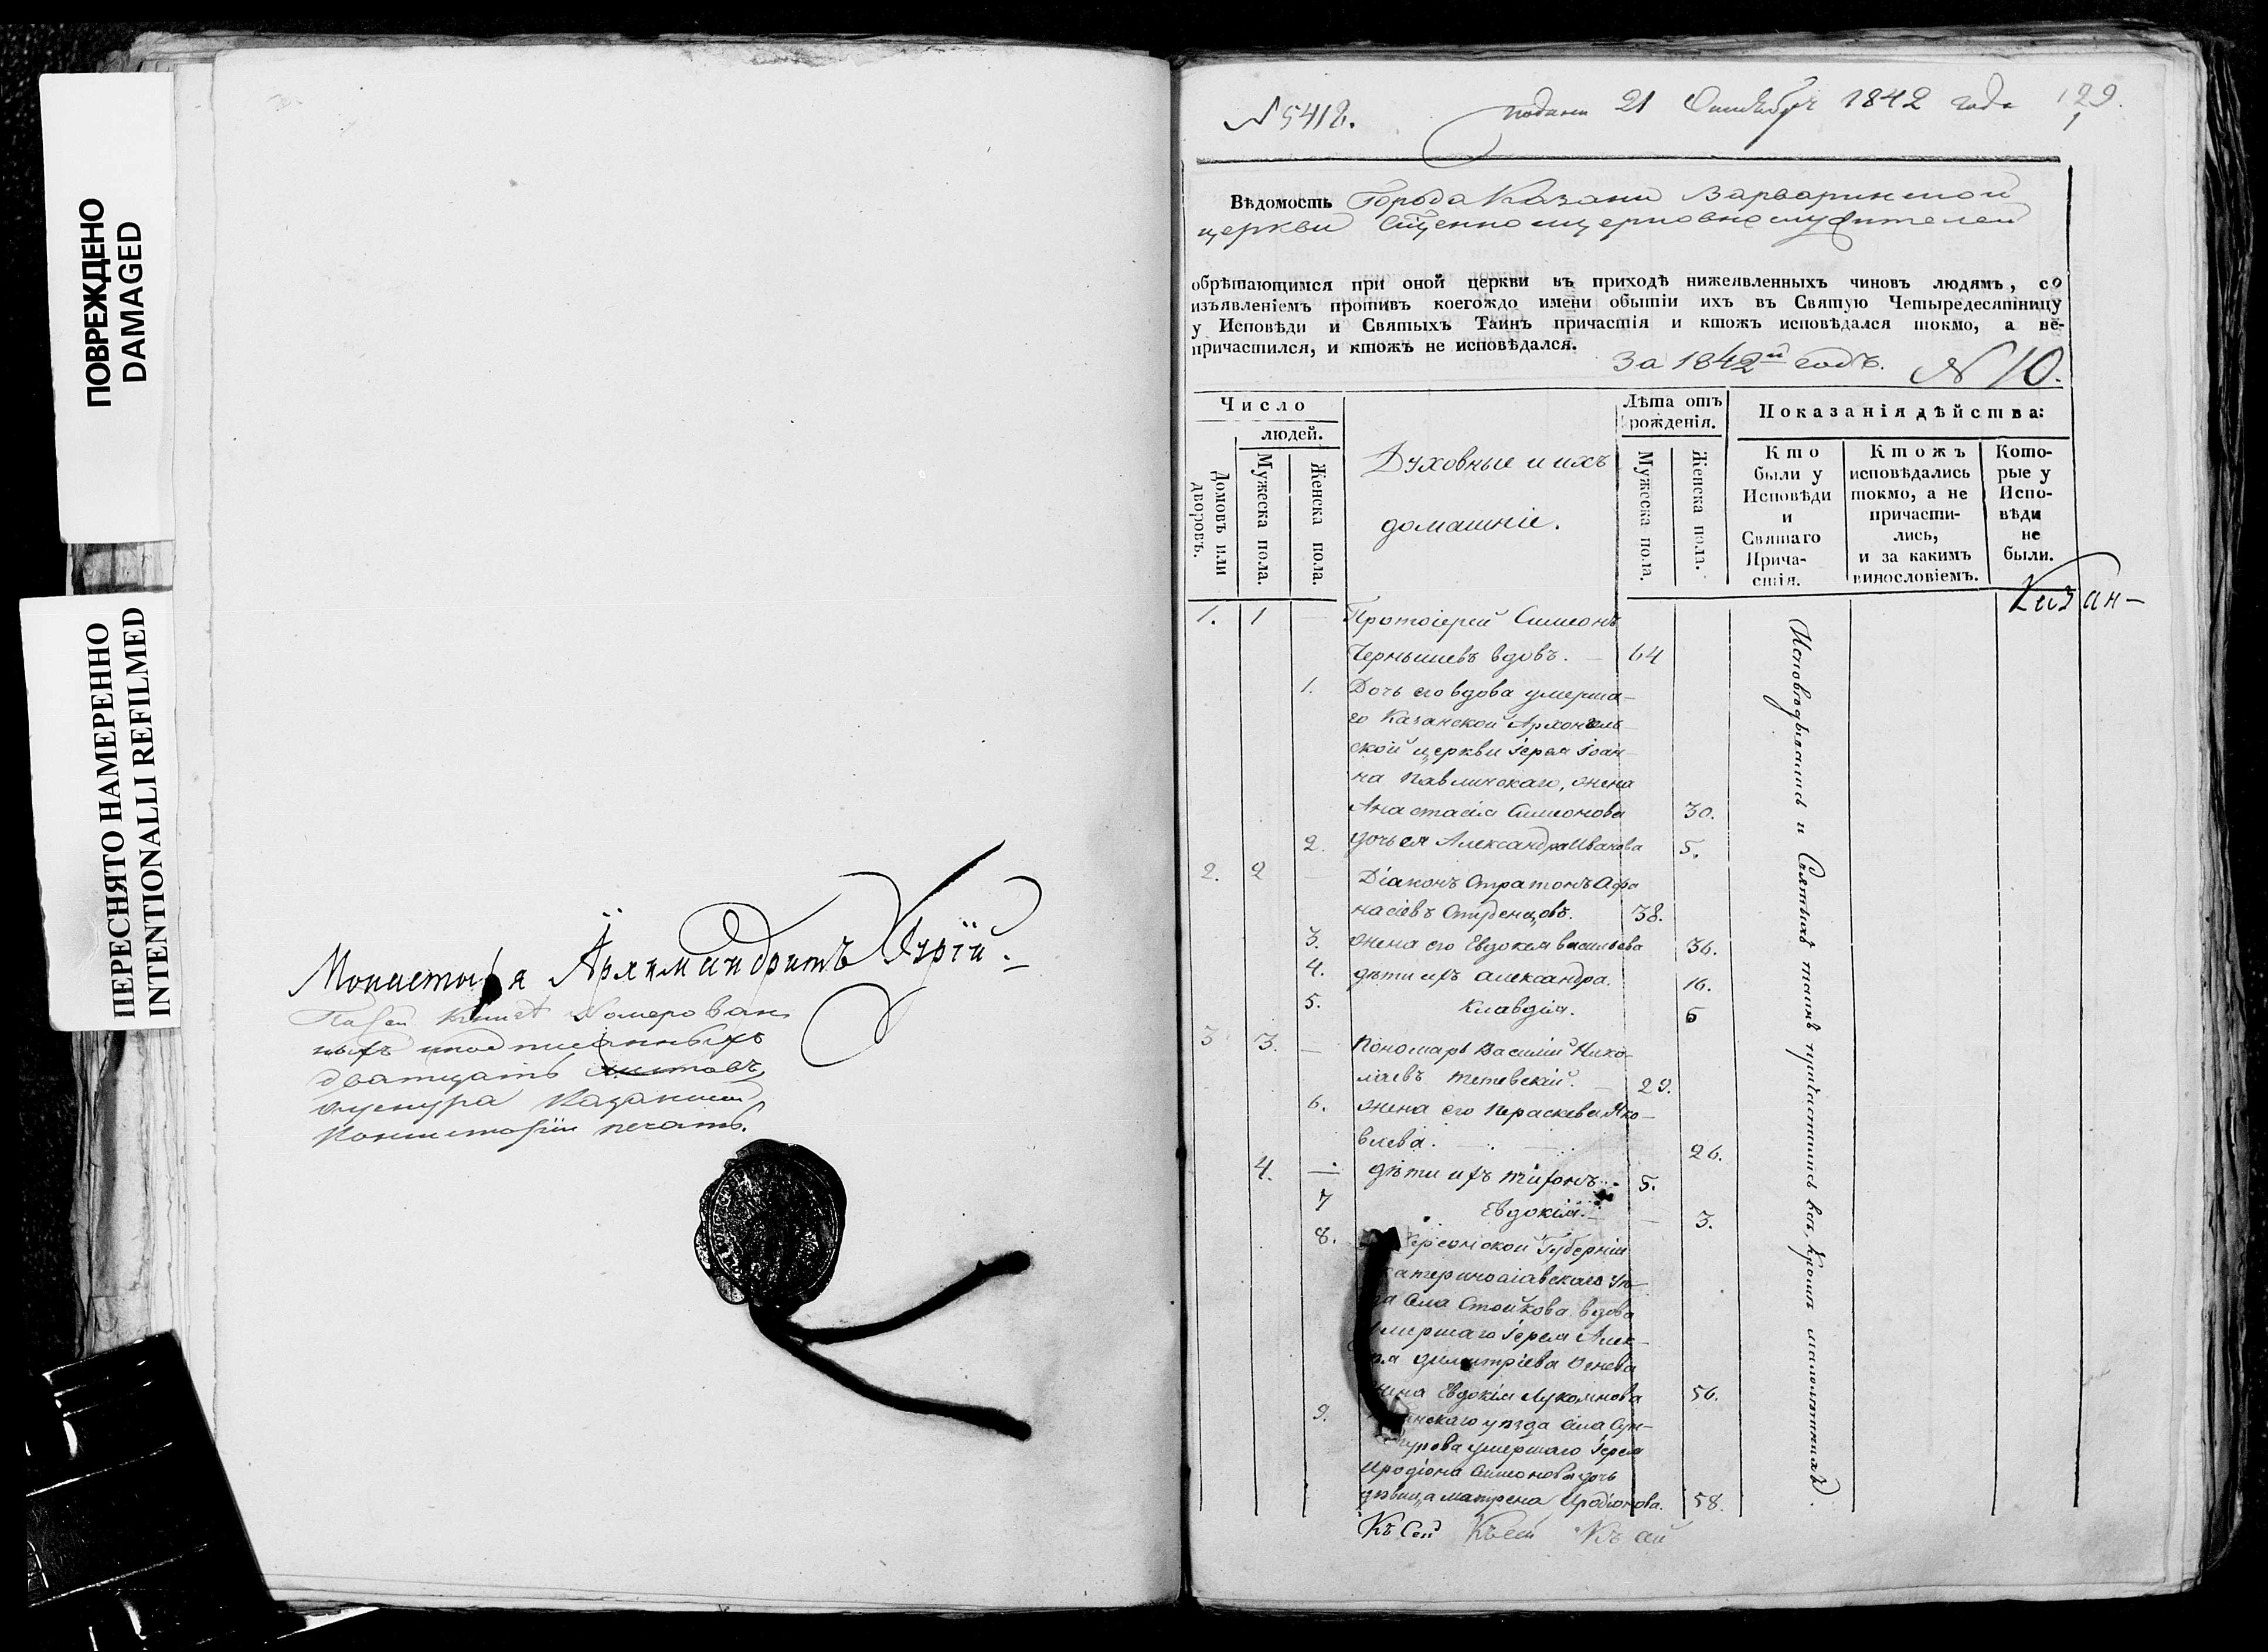 ПОВРЕЖДЕНО
DAMAGED
ПЕРЕСНЯТО НАМЕРЕННО
INTENTIONALLI REFILMED
Монастыря Архимандритъ Гурій.
номерован
ныхъ
двадцать листовъ
Казанской
Консисторіи печать.
N 5412.
подана 21 Октября 1842 года
129.
1
Вѣдомость Города Казани Варваринской
церкви Сщенноцерковнослужителей
обрѣтающимся при оной церкви въ приходѣ нижеявленныхъ чиновъ людямъ, со
изъявленіемъ противъ коегождо имени обытіи ихъ въ Святую Четыредесятницу
у Исповѣди и Святыхъ Таинъ причастія и ктожъ исповѣдался токмо, а не-
причастился, и ктожъ не исповѣдался.
За 1842й годъ. N 10.
Число
людей.
Домовъ или дворовъ.
Мужеска пола.
Женска пола.
Духовные и ихъ
домашніе.
Лѣта отъ
рожденія.
Мужеска пола.
Женска пола.
Показанія дѣйства:
Кто
были у
Исповѣди
и
Святаго
Прича-
стія.
Ктожъ
исповѣдались
токмо, а не
причасти-
лись,
и за какимъ
винословіемъ.
Кото-
рые у
Испо-
вѣди
не
были.
Казан-
1. 1 — Протоіерей Симеонъ
Чернышевъ вдовъ. — 64
1. Дочь его вдова умерша-
го Казанской Архангель
ской церкви Іерея Іоан
на Павлинскаго, жена
Анастасія Симеонова 30.
2. дочь ея Александра Иванова 5.
2. 2 — Діаконъ Стратонъ Афа
насіевъ Студенцовъ. 38.
3. жена его Евдокія Васильева 36.
4. дѣти ихъ Александра. 16.
5. Клавдія. 6
3 3. — Пономарь Василій Нико-
лаевъ Тетевскій. — 29.
6. жена его Параскева Яко-
влева. 26.
4. — дѣти ихъ Тихонъ. 5.
7 Евдокія. — 3.
8. Херсонской Губерніи
Екатеринославскаго уѣ-
да Села Стойкова вдова
умершаго Іерея Алек-
Димитріева Огнева
жена Евдокія Лукоянова 56.
9. уѣзда Села Сун-
умершаго Іерея
Иродіона Симеонова дочь
дѣвица Матрена Иродіонова. 58.
Исповѣдывались и Святыхъ таинъ причастились всѣ, кромѣ малолѣтнихъ.
Къ сей Къ сей Къ сей